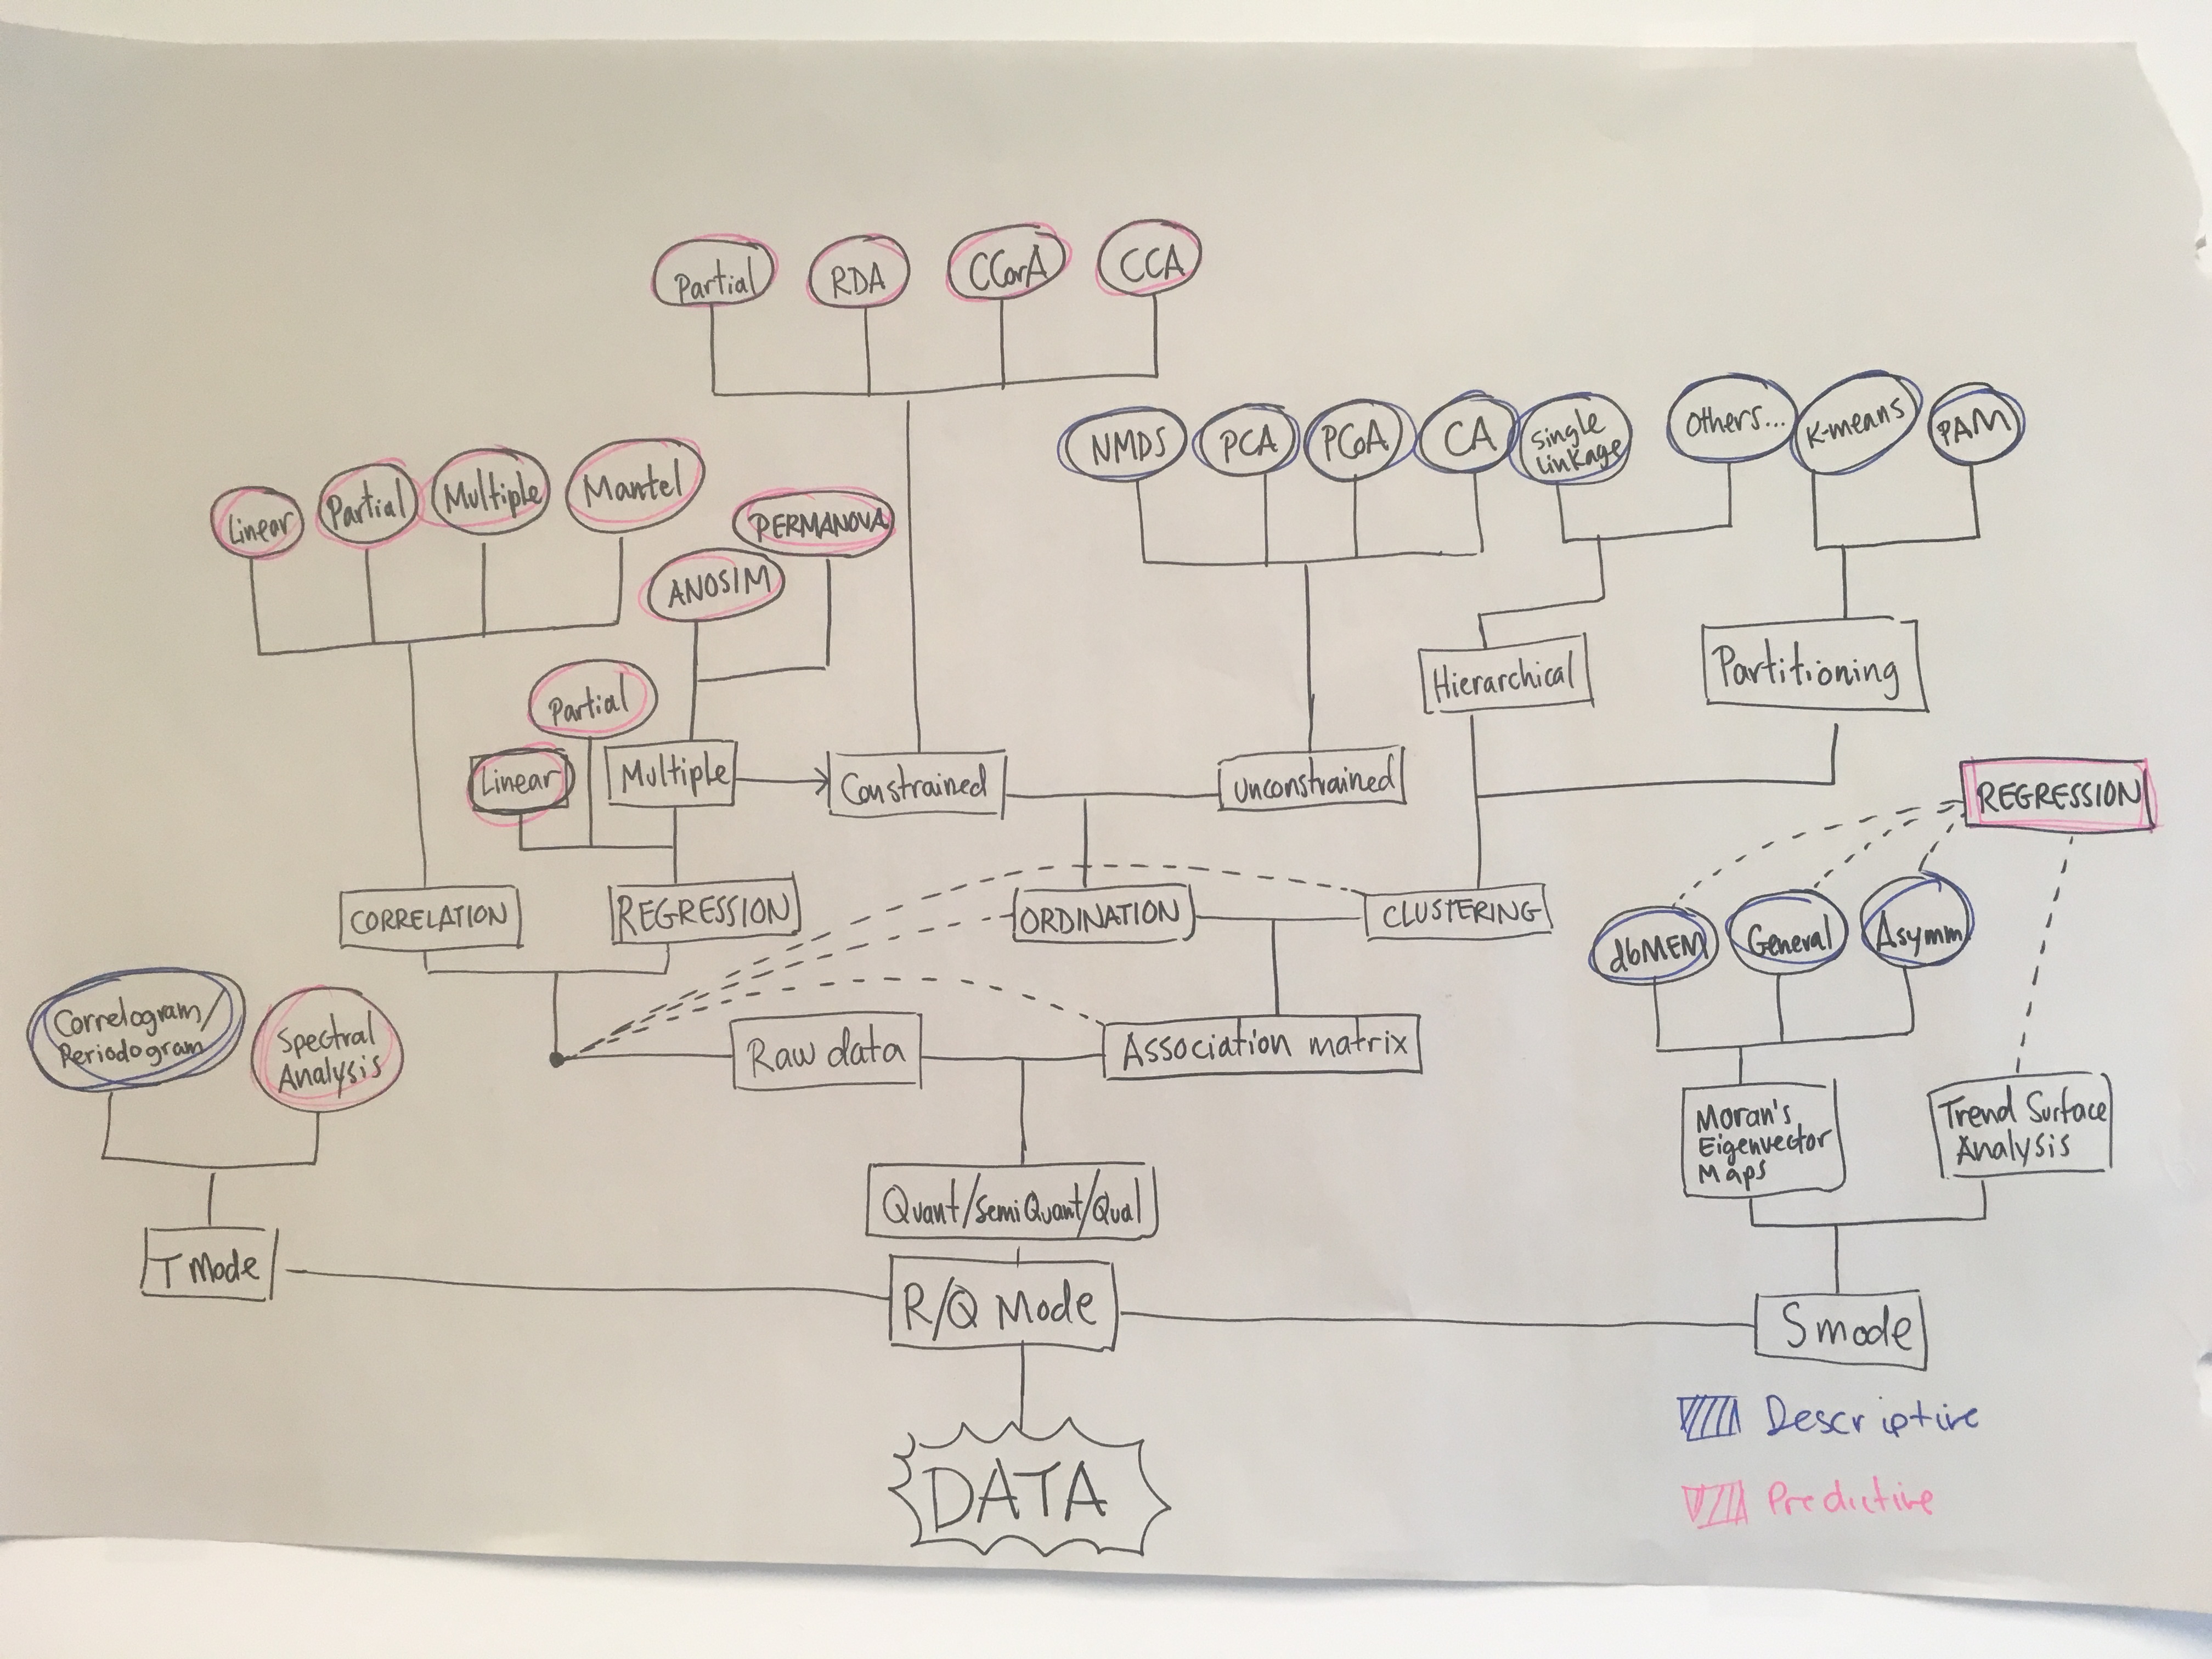 Partial
RDA
CCorA
CCA
NMDS
PCA
PCoA
CA
Single
Linkage
Others...
K-means
PAM
Linear
Partial
Multiple
Mantel
PERMANOVA
ANOSIM
Partial
Linear
Multiple
Constrained
Unconstrained
Hierarchical
Partitioning
REGRESSION
CORRELATION
REGRESSION
ORDINATION
CLUSTERING
dbMEM
General
Asymm
Correlogram/
Periodogram
Spectral
Analysis
Raw data
Association matrix
Moran's
Eigenvector
Maps
Trend Surface
Analysis
Quant/SemiQuant/Qual
T Mode
R/Q Mode
S mode
Descriptive
Predictive
DATA